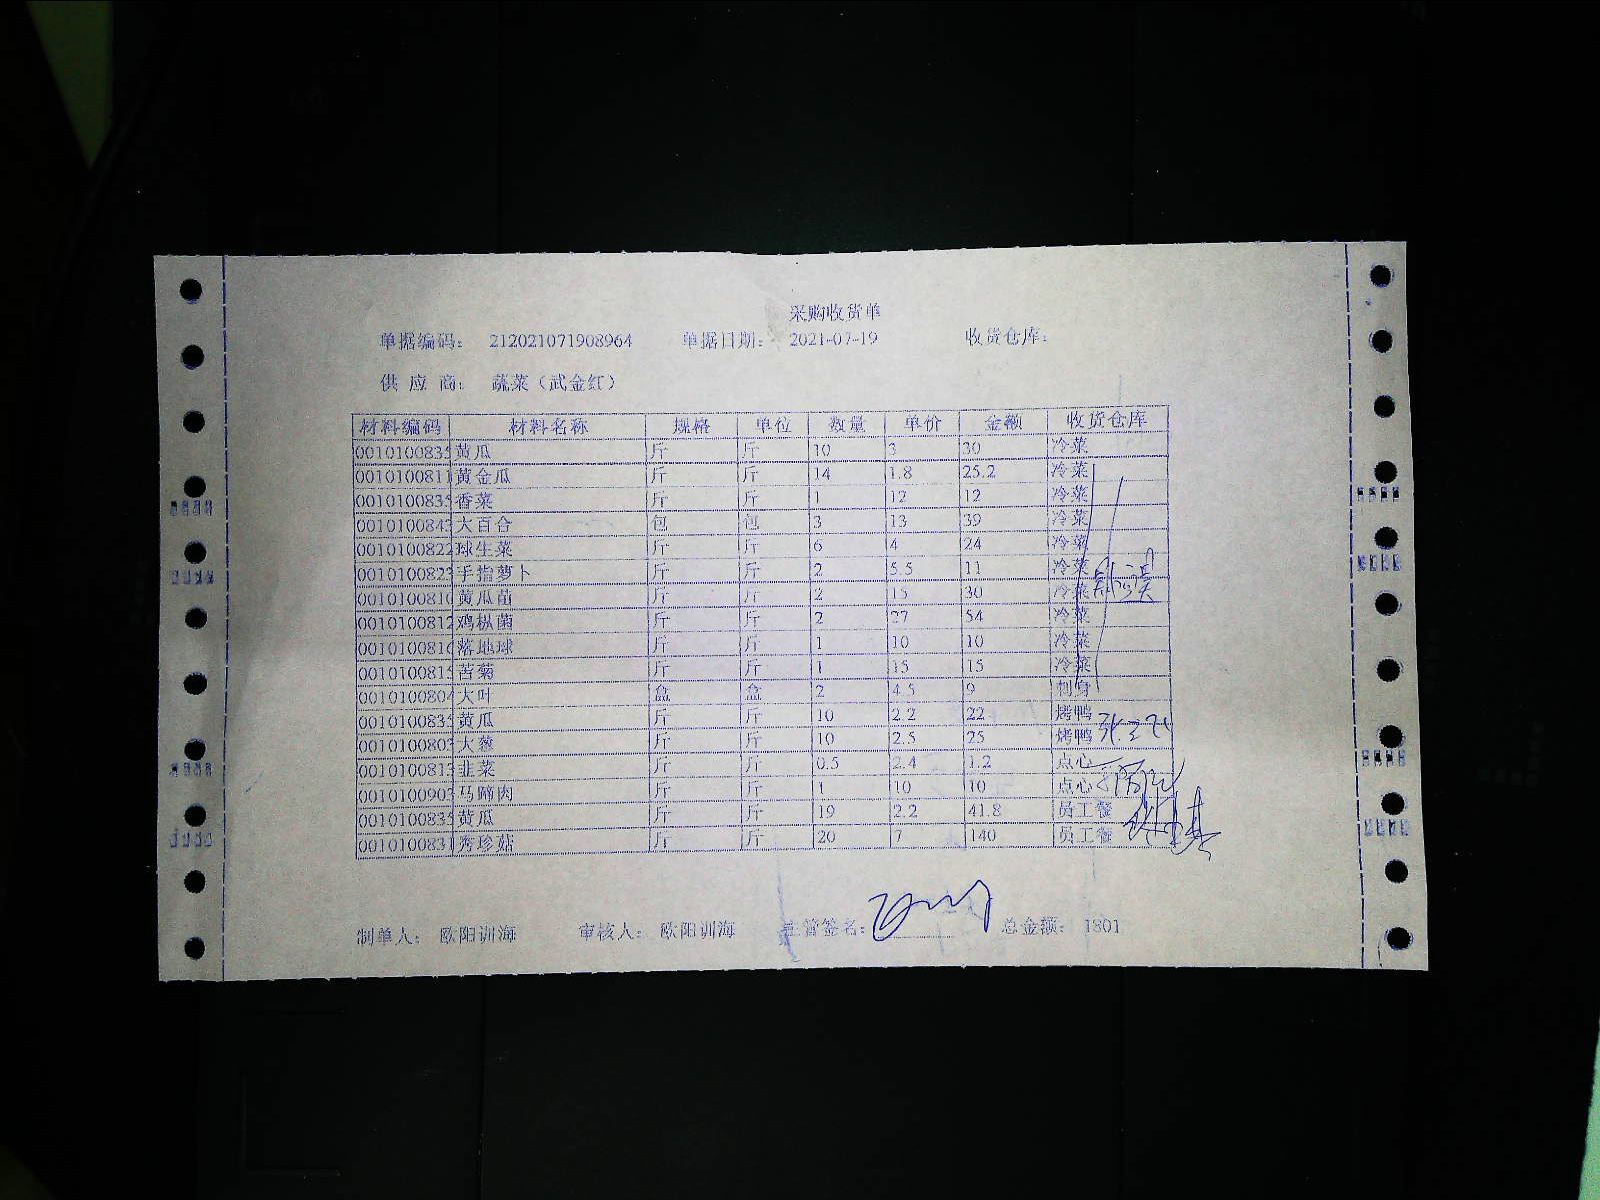 采购收货单
单据编码: 212021071908964 单据日期: 2021-07-19 收货仓库:
供 应 商: 蔬菜(武金红)
材料编码 材料名称 规格 单位 数量 单价 金额 收货仓库
001010083 黄瓜 斤 斤 10 3 30 冷菜
001010081 黄金瓜 斤 斤 14 1.8 25.2 冷菜
001010083 香菜 斤 斤 1 12 12 冷菜
001010084 大百合 包 包 3 13 39 冷菜
0010100822 球生菜 斤 斤 6 4 24 冷菜
001010082 手指萝卜 斤 斤 2 5.5 11 冷菜
001010081 黄瓜苗 斤 斤 2 15 30 冷菜
0010100812 鸡枞菌 斤 斤 2 27 54 冷菜
001010081 落地球 斤 斤 1 10 10 冷菜
001010081 苦菊 斤 斤 1 15 15 冷菜
001010080 大叶 盒 盒 2 4.5 9 刺身
001010083 黄瓜 斤 斤 10 2.2 22 烤鸭
001010080 大葱 斤 斤 10 2.5 25 烤鸭
001010081 韭菜 斤 斤 0.5 2.4 1.2 点心
001010090 马蹄肉 斤 斤 1 10 10 点心
001010083 黄瓜 斤 斤 19 2.2 41.8 员工餐
001010083 秀珍菇 斤 斤 20 7 140 员工餐
制单人: 欧阳训海 审核人: 欧阳训海 主管签名: 总金额: 1801